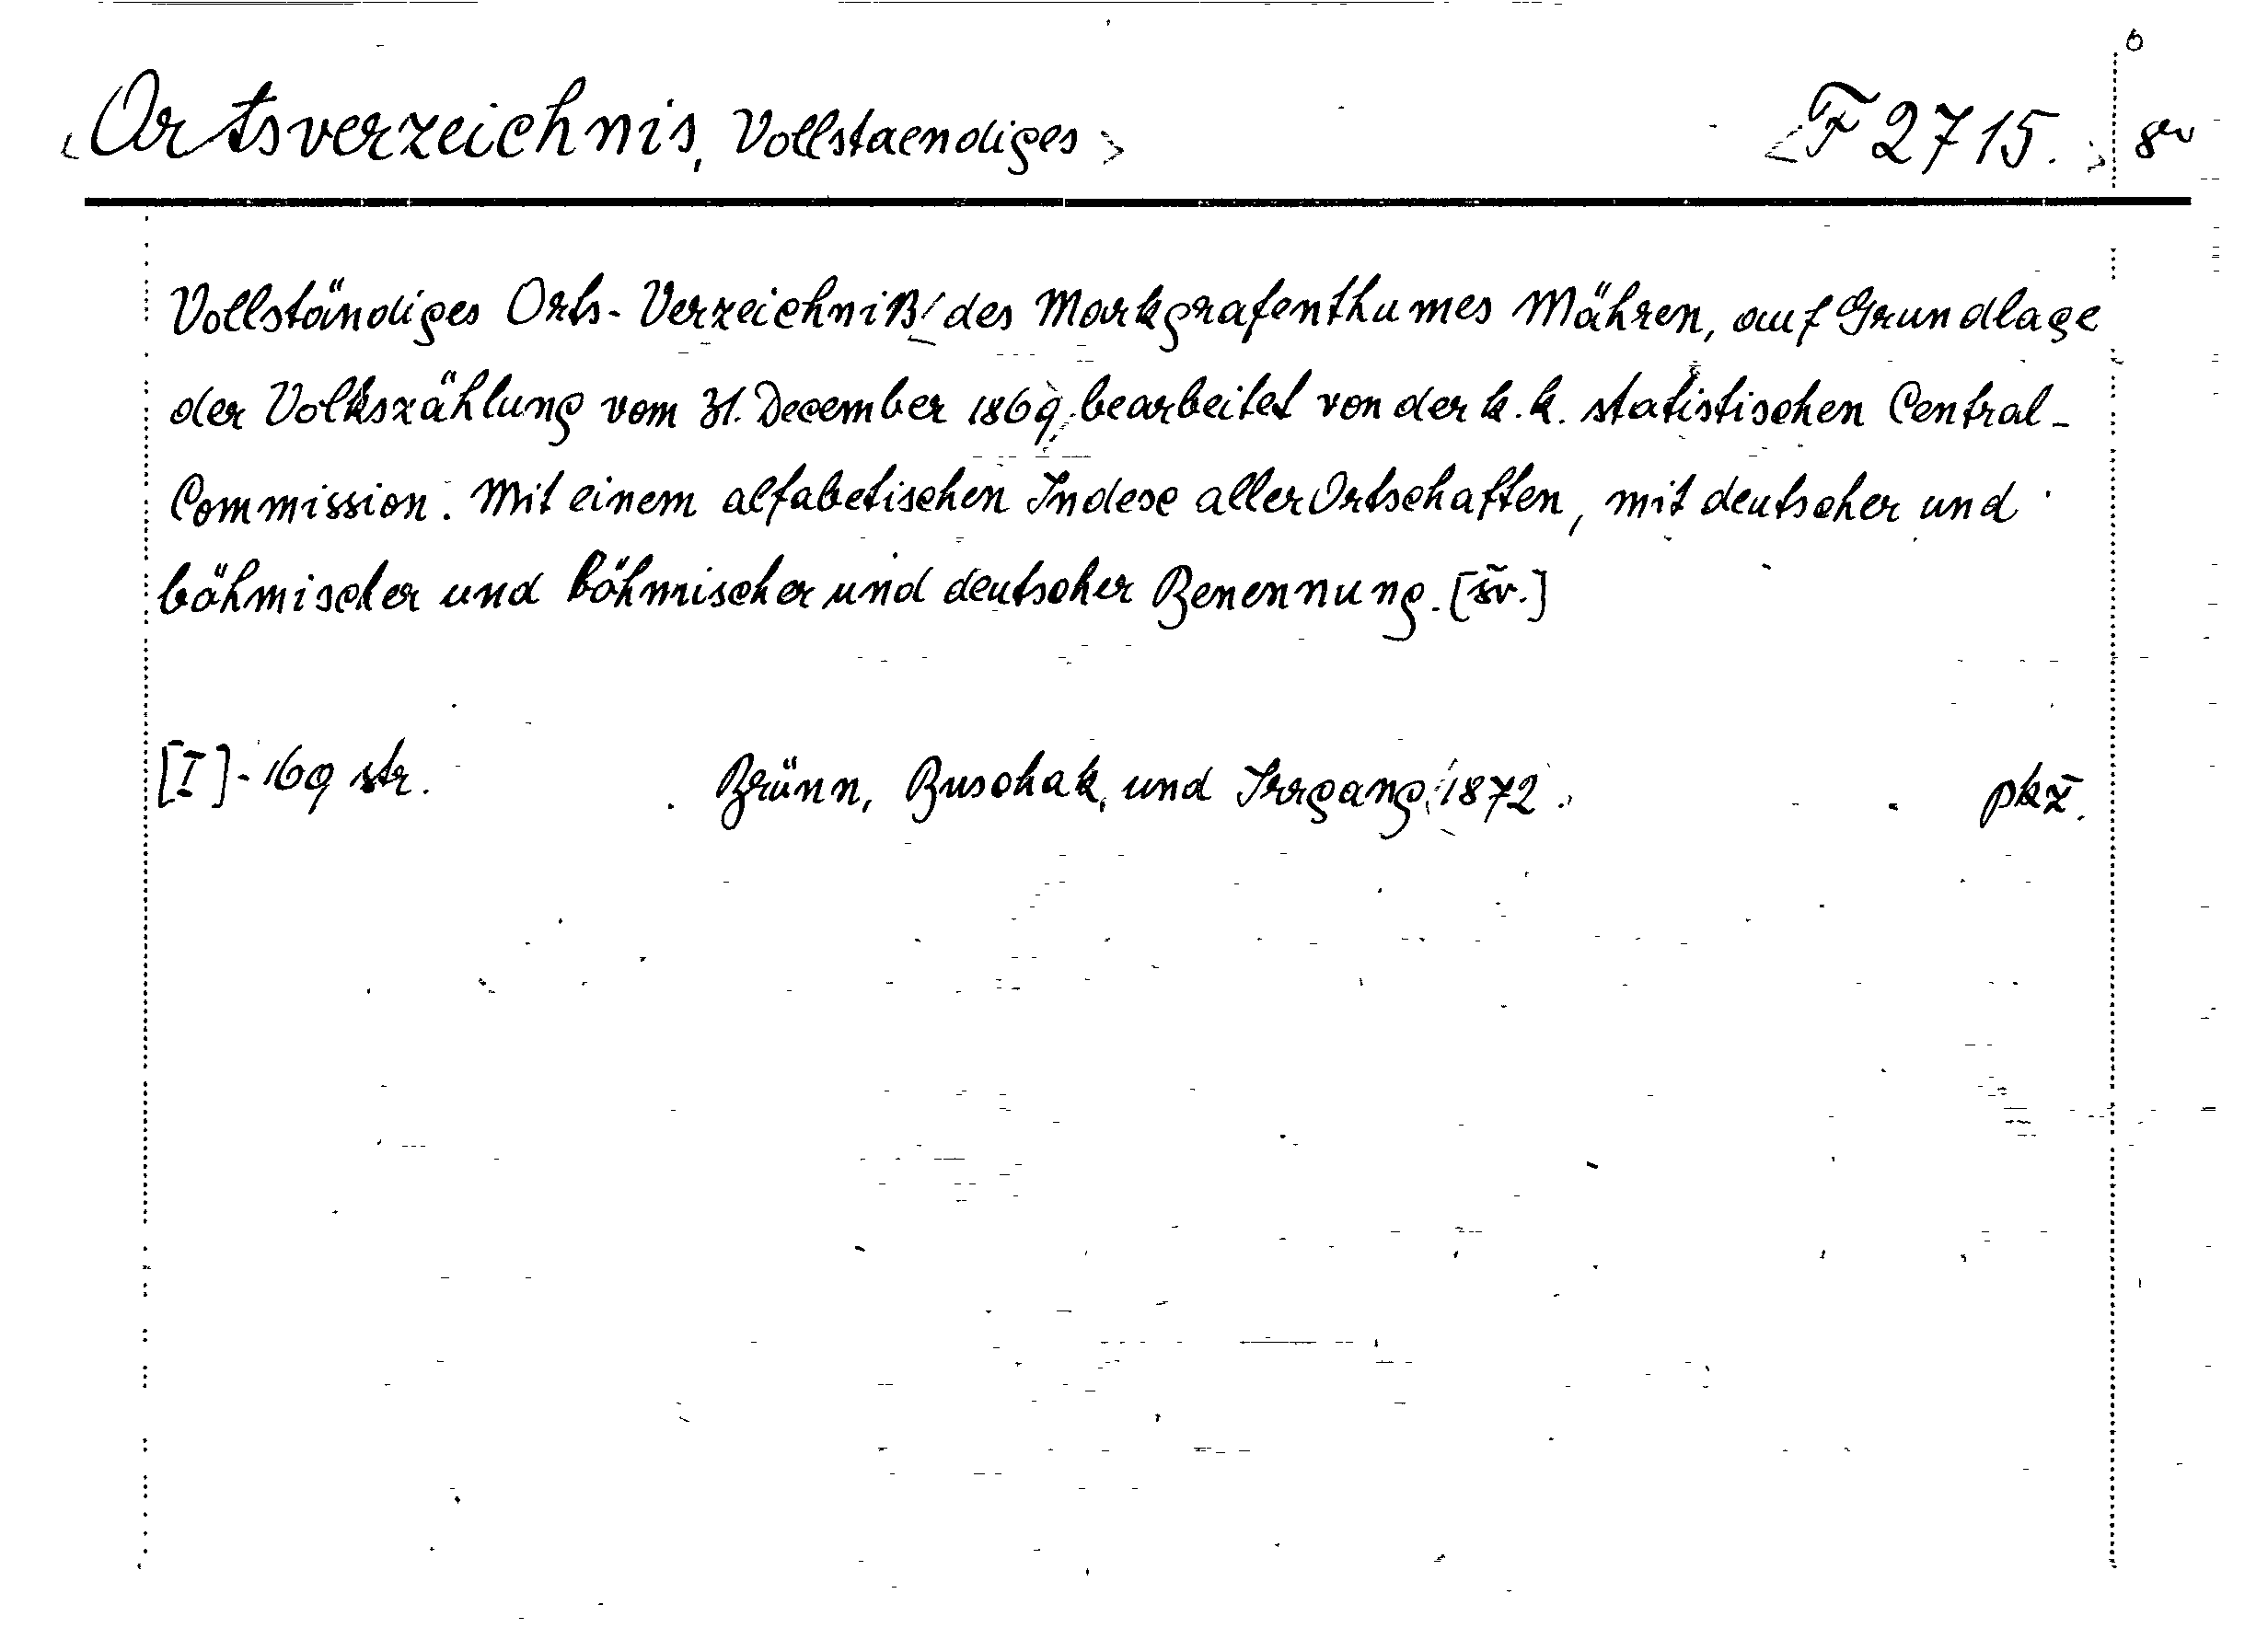 <Ortsverzeichnis, Vollstaendiges> <F 2715.>
Vollständiges Orts-Verzeichniß des Markgrafenthumes Mähren, auf Grundlage
der Volkszählung vom 31. December 1869 bearbeitet von der k. k. statistischen Central-
Commission. Mit einem alfabetischen Indexe aller Ortschaften, mit deutscher und
böhmischer und böhmischer und deutscher Benennung. [šv.]
[I]-169 str. Brünn, Buschak, und Irrgang, 1872. pkž.